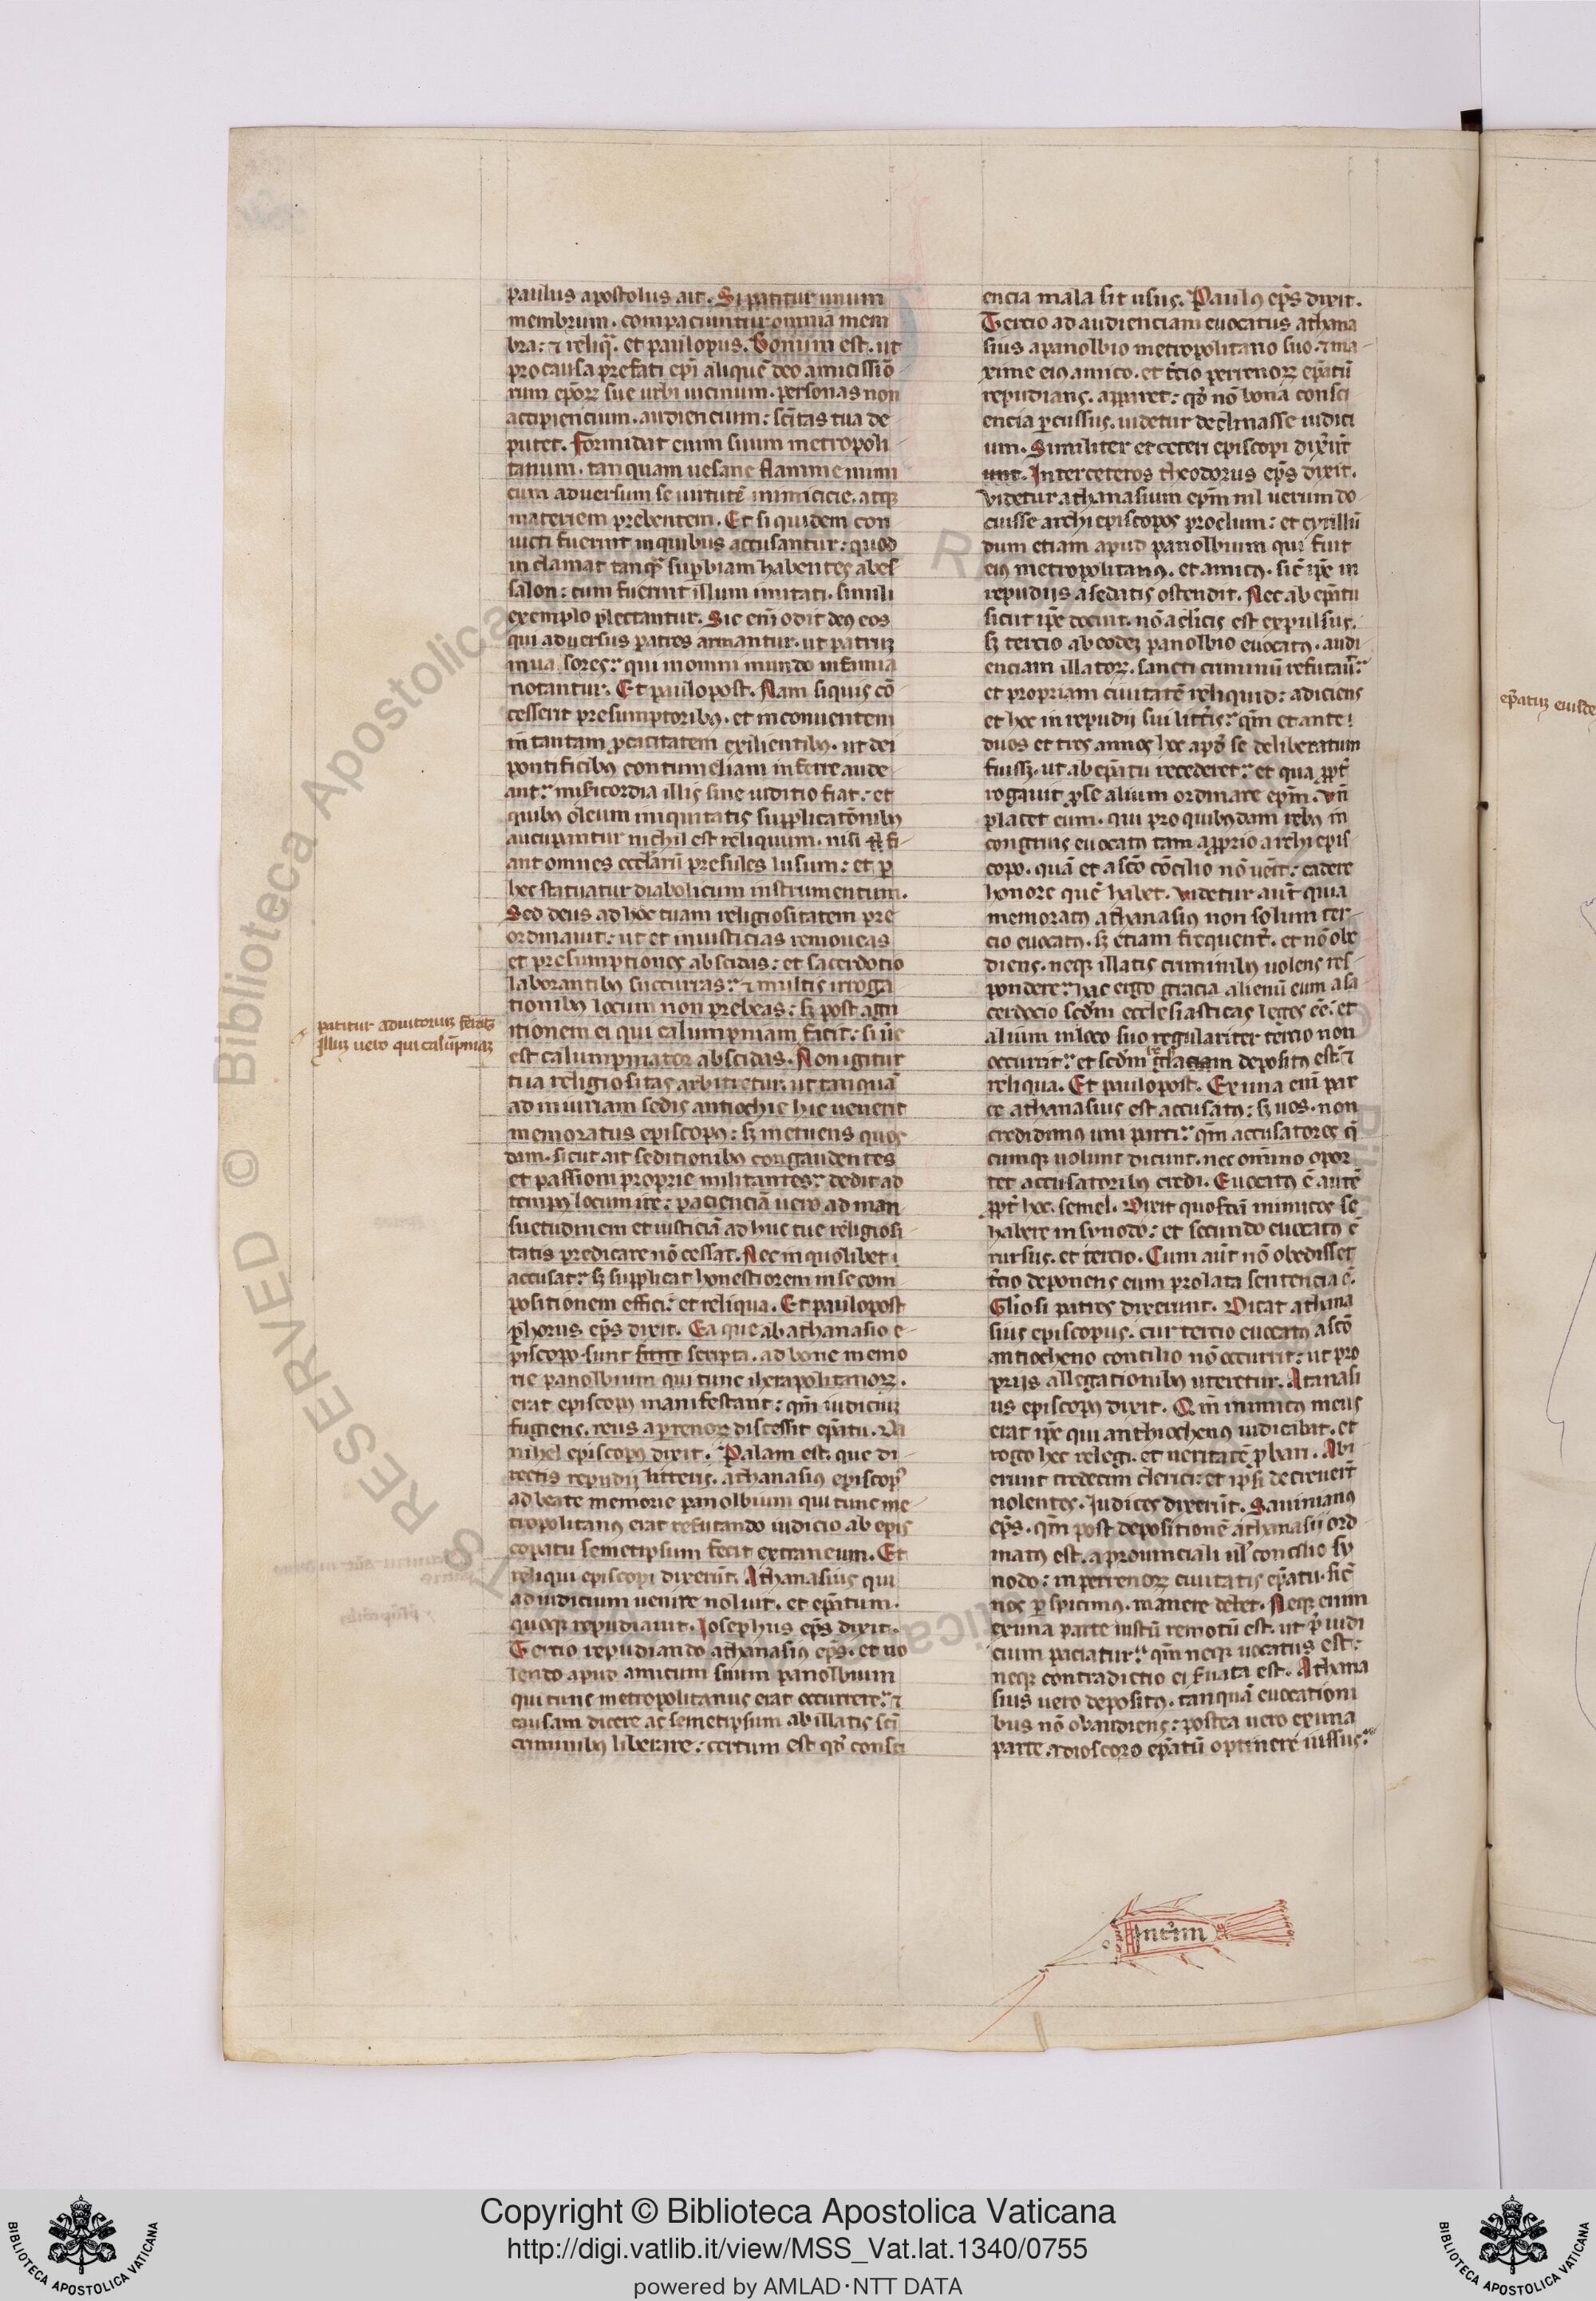 paulus apostolus ait. Si patitur unum
membrum. compaciuntur omnia mem
bra: ⁊ reliq̄. et paulopus. Bonum est. ut
pro causa prefati ep̄i aliquē deo amicissio
rum ep̄orꝝ sue urbi uicinum. personas non
accipiencium. audiencium: sc̄itas tua de
putet. Formidat enim suum metropoli
tanum. tanquam uesane flamme inimi
cum aduersum se uirtutē inimicicie. atqꝫ
materiem prebentem. Et siquidem con
uicti fuerint in quibus accusantur: quod
inclamat tanqᷓ suꝑbiam habentes abes
salon: cum fuerint illum imitati. simili
exemplo plectantur. Sic eni odit deꝰ eos
qui aduersus patres armantur. ut patruꝫ
inuasores: qui in omni mundo infamia
notantur. Et paulopost. Nam siquis cō
cesserit presumptoribꝰ. et inconuentem
in tantam ꝓcacitatem exilientibꝰ. ut dei
pontificibꝰ contumeliam inferre aude
ant: misericordia illis sine iuditio fiat: et
quibꝰ oleum iniquitatis supplicatōnibꝰ
aucupantur nichil est reliquum. nisi ꝙ fi
ant omnes eccl̄iarū presules lusum: et ꝑ
hec statuatur diabolicum instrumentum.
Sed deus ad hoc tuam religiositatem pre
ordinauit: ut et iniusticias remoueas
et presumptiones abscidas: et sacerdotio
laborantibꝰ succurras: ⁊ multis irroga
tionibꝰ locum non prebeas: sꝫ post agn
itionem ei qui calumpniam facit: si ūe
est calumpniator abscidas. Non igitur
tua religiositas arbitretur. ut tanquā
ad iniuriam sedis antiochie hic uenerit
memoratus episcopꝰ: sꝫ metuens quos
dam. sicut ait seditionibꝰ congaudentes
et passioni proprie militantes: dedit ad
tempꝰ locum ire: pacienciā uero ad man
suetudinem et iusticiā ad huc tue religiosi
tatis predicare nō cessat. Nec in quolibet
accusat: sꝫ supplicat honestiorem in se com
positionem effici: et reliqua. Et paulopost
phorus ep̄s dixit. Ea que ab athanasio e
piscopo. sunt sunt scripta. ad bone memo
rie panolbium qui tunc iherapolitanorꝝ.
erat episcopꝰ manifestant: qm̄ iudiciuꝫ
fugiens. reus a perrenorꝝ discessit ep̄atu. Da
nihel episcopꝰ dixit. Palam est. que di
rectis repudij litteris. athanasiꝰ episcopꝰ
ad beate memorie panolbium qui tunc me
tropolitanꝰ erat refutando iudicio ab epis
copatu semetipsum fecit extraneum. Et
reliqui episcopi dixerūt. Athanasius qui
ad iudicium uenire noluit. et ep̄atum.
quoqꝫ repudiauit. Iosephus ep̄s dixit.
Tercio repudiando athanasiꝰ ep̄s. et no
lendo apud amicum suum panolbium
qui tunc metropolitanus erat occurrere: ⁊
causam dicere ac semetipsum ab illatis sci
criminibꝰ liberare: certum est qd̄ consci
patitur adiutoriuꝫ feratis
illuꝫ uero qui calūpniaꝫ
encia mala sit usus. Paulꝰ ep̄s dixit.
Tercio ad audienciam euocatus athana
sius a panolbio metropolitano suo. ⁊ ma
xime eiꝰ amico. et t̄cio perrenorꝝ ep̄atū
repudians. apparet: qd̄ nō bona consci
encia ꝑcussus. uidetur declinasse iudici
um. Similiter et ceteri episcopi dixerūt
unt. Inter ceteros theodorus ep̄s dixit.
Videtur athanasium ep̄m nil uerum do
cuisse archiepiscopos proclum: et cyrillū
dum etiam apud panolbium qui fuit
eiꝰ metropolitanꝰ. et amicꝰ. sic̄ ip̄e in
repudijs a se datis ostendit. Nec ab ep̄atu
sicut ip̄e docuit. nō a clicis est expulsus.
sꝫ tercio ab eodeꝫ panolbio euocatꝰ. audi
enciam illatorꝝ. sancti criminū refutauit:
et propriam ciuitatē reliquid: adiciens
et hec in repudij sui litt̄is: qm̄ et ante
duos et tres annos hec apd̄ se deliberatum
fuissꝫ. ut ab ep̄atu recederet: et qua ꝓpt̄
rogauit ꝓ se alium ordinare ep̄m. vn̄
placet eum. qui pro quibꝰdam rebꝰ in
congruis euocatꝰ tam a ꝓprio archiepis
copo. quā et a scō cōcilio nō uēit: cadere
honore quē habet. videtur aut̄ quia
memoratꝰ athanasiꝰ non solum ter
cio euocatꝰ. sꝫ etiam frequent̄. et nō obe
diens. neqꝫ illatis criminibꝰ uolens res
pondere: hac ergo gracia alienū eum a sa
cerdocio scd̄m ecclesiasticas leges eē: et
alium in loco suo regulariter tercio non
occurrit: et scd̄m graciam depositꝰ est: ⁊
reliqua. Et paulopost. Ex una eni par
te athanasius est accusatꝰ: sꝫ uos. non
credidimꝰ uni parti: qm̄ accusatores q̄
cumqꝫ uolunt dicunt. nec omīno opor
tet accusatoribus credi. Euocatꝰ ē autē
ꝓpt̄ hoc. semel. Dixit quosdā inimicos se
habere in synodo: et secundo euocatꝰ ē
rursus. et tercio. Cum aut̄ nō obedisset
t̄cio deponens eum prolata sentencia ē.
Gl̄iosi patres dixerunt. Dicat athana
sius episcopus. cur tercio euocatꝰ a scō
antiocheno concilio nō occurrit: ut pro
prijs allegationibꝰ uteretur. Atanasi
us episcopꝰ dixit. Qm̄ inimicꝰ meus
erat ip̄e qui anthiochenꝰ iudicabat. et
rogo hec relegi. et ueritatē ꝓbari. Abi
erunt tredecim clerici: et ip̄si decreuer̄t
nolentes. Iudices dixerūt. Sauinianꝰ
ep̄s. qm̄ post depositionē athanasii ord
inatꝰ est. a prouinciali ul̄ concilio sy
nodo: in perrenorꝝ ciuitatis ep̄atu. sic̄
nos ꝑspicimꝰ. manere debet. Neqꝫ enim
ex una parte iustū remotū est. ut p̄iudi
cium paciatur: qm̄ neqꝫ uocatus est:
neqꝫ contradictio ei seruata est. Athana
sius uero depositꝰ. tanquā euocationi
bus nō obaudiens: postea uero ex una
parte. a dioscoro ep̄atū optinere iussus:
Int̄im
ep̄atuꝫ eiusde
Copyright © Biblioteca Apostolica Vaticana
http://digi.vatlib.it/view/MSS_Vat.lat.1340/0755
powered by AMLAD·NTT DATA
BIBLIOTECA APOSTOLICA VATICANA
BIBLIOTECA APOSTOLICA VATICANA